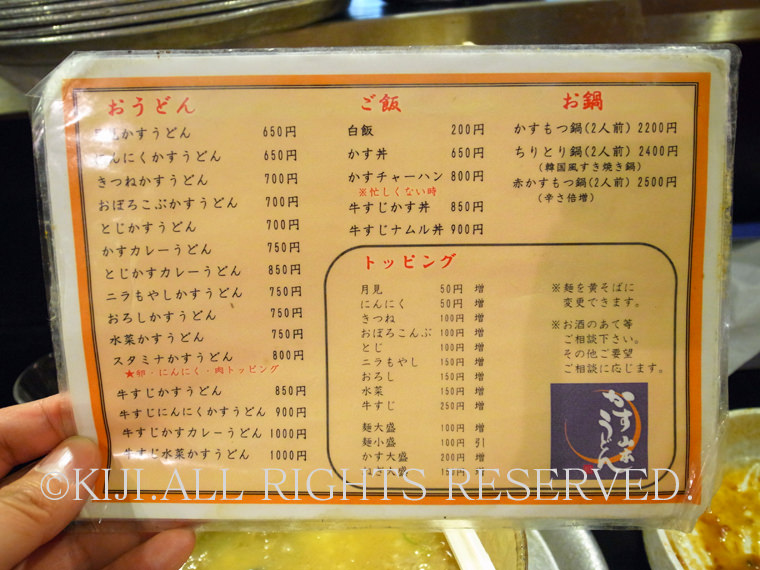 おうどん
見かすうどん 650円
にんにくかすうどん 650円
きつねかすうどん 700円
おぼろこぶかすうどん 700円
とじかすうどん 700円
かすカレーうどん 750円
とじかすカレーうどん 850円
ニラもやしかすうどん 750円
おろしかすうどん 750円
水菜かすうどん 750円
スタミナかすうどん 800円
★卵・にんにく・肉トッピング
牛すじかすうどん 850円
牛すじにんにくかすうどん 900円
牛すじかすカレーうどん 1000円
牛すじ水菜かすうどん 1000円
ご飯
白飯 200円
かす丼 650円
かすチャーハン 800円
※忙しくない時
牛すじかす丼 850円
牛すじナムル丼 900円
お鍋
かすもつ鍋(2人前) 2200円
ちりとり鍋(2人前) 2400円
(韓国風すき焼き鍋)
赤かすもつ鍋(2人前) 2500円
(辛さ倍増)
トッピング
月見 50円 増
にんにく 50円 増
きつね 100円 増
おぼろこんぶ 100円 増
とじ 100円 増
ニラもやし 150円 増
おろし 150円 増
水菜 150円 増
牛すじ 250円 増
麺大盛 100円 増
麺小盛 100円 引
かす大盛 200円 増
ねぎ大盛 150円 増
※麺を黄そばに
変更できます。
※お酒のあて等
ご相談下さい。
その他ご要望
ご相談に応じます。
かすうどん
©KIJI.ALL RIGHTS RESERVED.